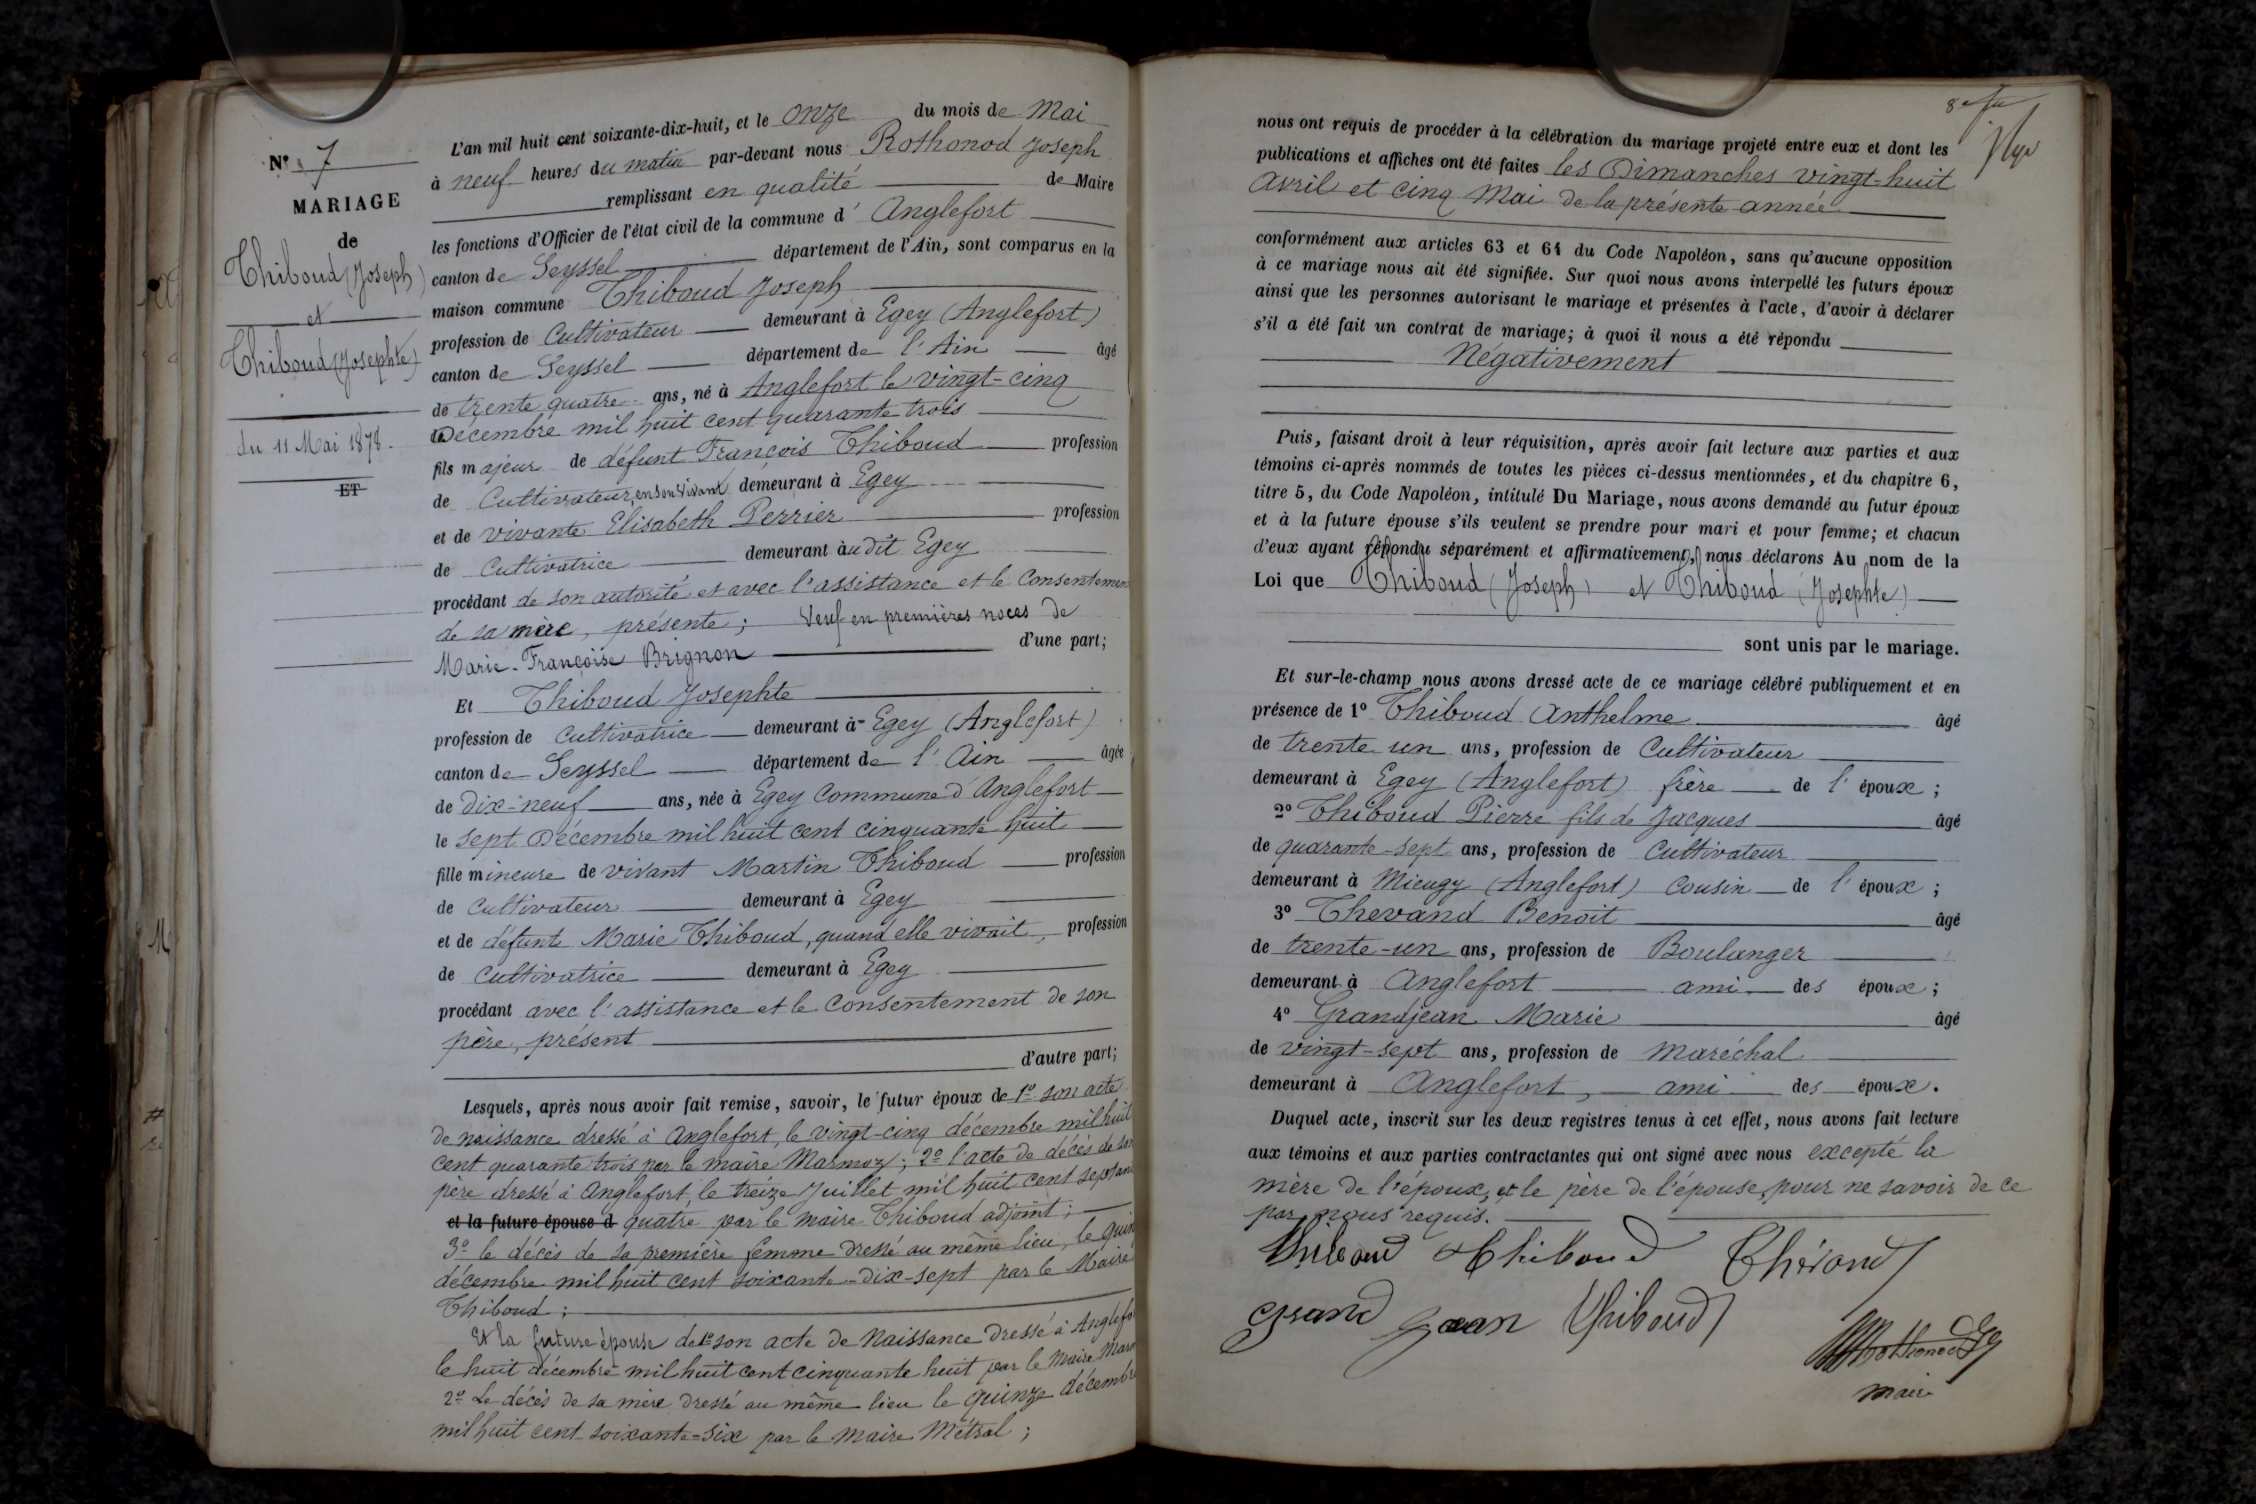 N° 7
MARIAGE
de
Thiboud (Joseph)
et
Thiboud (Josephte)
du 11 Mai 1878.
ET
L'an mil huit cent soixante-dix-huit, et le onze du mois de Mai
à neuf heures du matin par-devant nous Rothonod Joseph
remplissant en qualité de Maire
les fonctions d'Officier de l'état civil de la commune d' Anglefort
canton de Seyssel département de l'Ain, sont comparus en la
maison commune Thiboud Joseph
profession de Cultivateur demeurant à Egey (Anglefort)
canton de Seyssel département de l'Ain âgé
de trente quatre ans, né à Anglefort le vingt-cinq
Décembre mil huit cent quarante trois
fils majeur de défunt François Thiboud profession
de Cultivateur, en son vivant demeurant à Egey
et de vivante Elisabeth Perrier profession
de Cultivatrice demeurant àudit Egey
procédant de son autorité et avec l'assistance et le Consentement
de sa mère, présente; Veuf en premières noces de
Marie-Françoise Brignon d'une part;
Et Thiboud Josephte
profession de Cultivatrice demeurant à Egey (Anglefort)
canton de Seyssel département de l'Ain âgée
de dix-neuf ans, née à Egey Commune d'Anglefort
le sept Décembre mil huit cent cinquante huit
fille mineure de vivant Martin Thiboud profession
de Cultivateur demeurant à Egey
et de défunte Marie Thiboud, quand elle vivait, profession
de Cultivatrice demeurant à Egey
procédant avec l'assistance et le Consentement de son
père, présent
d'autre part;
Lesquels, après nous avoir fait remise, savoir, le futur époux de 1° son acte
de naissance dressé à Anglefort, le vingt-cinq décembre mil huit
cent quarante trois par le maire Marmoz; 2° l'acte de décès de son
père dressé à Anglefort, le treize Juillet mil huit cent septan
et la future épouse d quatre par le maire Thiboud adjoint;
3° le décès de sa première femme dressé au même lieu, le quin
décembre mil huit cent soixante-dix-sept par le Maire
Thiboud;
Et la future épouse de 1° son acte de Naissance dressé à Anglefo
le huit décembre mil huit cent cinquante huit par le Maire Marm
2° Le décès de sa mère dressé au même lieu le quinze décembre
mil huit cent soixante-six par le maire Métral;
8e
nous ont requis de procéder à la célébration du mariage projeté entre eux et dont les
publications et affiches ont été faites les Dimanches vingt-huit
Avril et cinq Mai de la présente année
conformément aux articles 63 et 64 du Code Napoléon, sans qu'aucune opposition
à ce mariage nous ait été signifiée. Sur quoi nous avons interpellé les futurs époux
ainsi que les personnes autorisant le mariage et présentes à l'acte, d'avoir à déclarer
s'il a été fait un contrat de mariage; à quoi il nous a été répondu
Négativement
Puis, faisant droit à leur réquisition, après avoir fait lecture aux parties et aux
témoins ci-après nommés de toutes les pièces ci-dessus mentionnées, et du chapitre 6,
titre 5, du Code Napoléon, intitulé Du Mariage, nous avons demandé au futur époux
et à la future épouse s'ils veulent se prendre pour mari et pour femme; et chacun
d'eux ayant répondu séparément et affirmativement, nous déclarons Au nom de la
Loi que Thiboud (Joseph) et Thiboud (Josephte)
sont unis par le mariage.
Et sur-le-champ nous avons dressé acte de ce mariage célébré publiquement et en
présence de 1° Thiboud Anthelme âgé
de trente un ans, profession de Cultivateur
demeurant à Egey (Anglefort) frère de l'époux;
2° Thiboud Pierre fils de Jacques âgé
de quarante-sept ans, profession de Cultivateur
demeurant à Mieugy (Anglefort) Cousin de l'époux;
3° Thevand Benoit âgé
de trente-un ans, profession de Boulanger
demeurant à Anglefort ami des époux;
4° Grandjean Marie âgé
de vingt-sept ans, profession de Maréchal
demeurant à Anglefort, ami des époux.
Duquel acte, inscrit sur les deux registres tenus à cet effet, nous avons fait lecture
aux témoins et aux parties contractantes qui ont signé avec nous excepté la
mère de l'époux, et le père de l'épouse, pour ne savoir de ce
par nous requis.
Thiboud Thiboud Thévand
Grand Jean Thiboud
Rothonod
maire